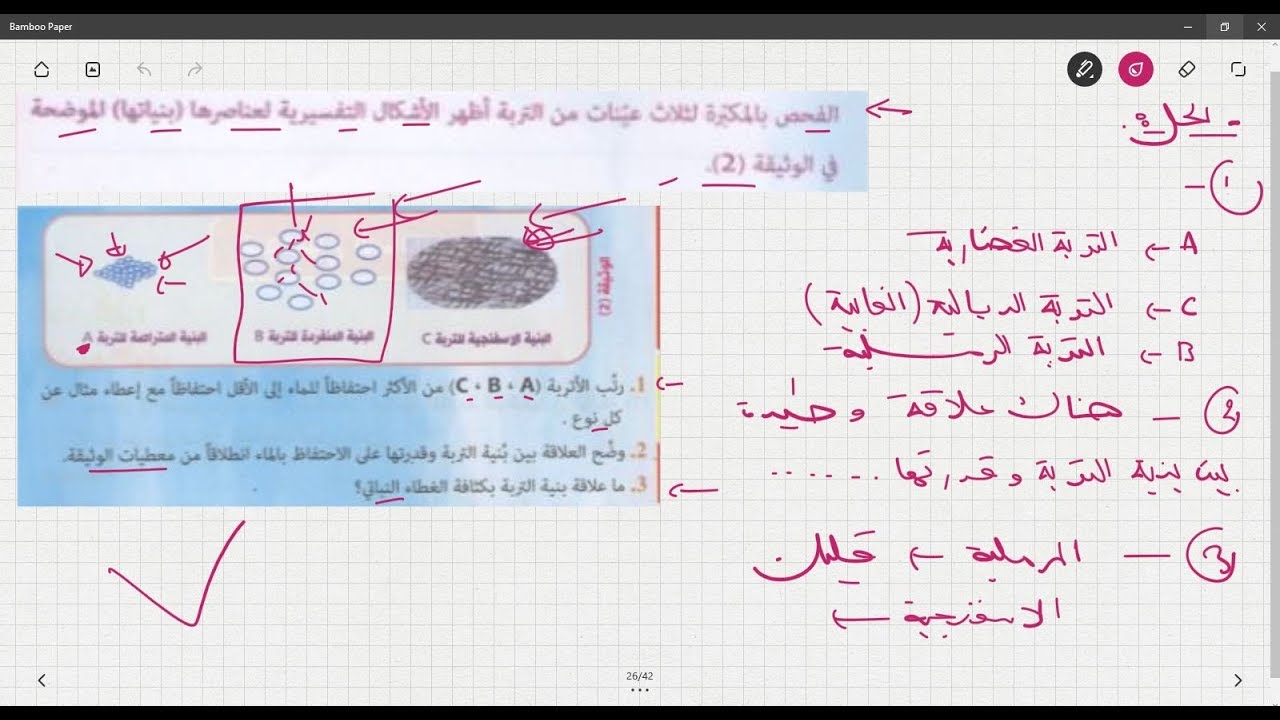 Bamboo Paper
الفحص بالمكبّرة لثلاث عيّنات من التربة أظهر الأشكال التفسيرية لعناصرها (بنياتها) الموضحة
في الوثيقة (2).
البنية المتراصة للتربة A
البنية المنفردة للتربة B
البنية الاسفنجية للتربة C
الوثيقة (2)
1. رتّب الأتربة (C ، B ، A) من الأكثر احتفاظاً للماء إلى الأقل احتفاظاً مع إعطاء مثال عن
كل نوع .
2. وضّح العلاقة بين بُنية التربة وقدرتها على الاحتفاظ بالماء انطلاقاً من معطيات الوثيقة.
3. ما علاقة بنية التربة بكثافة الغطاء النباتي؟
الحل:
1 -
A ← التربة الغضارية
C ← التربة الدبالية (الغابية)
B ← التربة الرملية
2 - هناك علاقة وطيدة
بين بنية التربة وقدرتها ......
3 - الرملية ← قليل
الاسفنجية ←
26/42